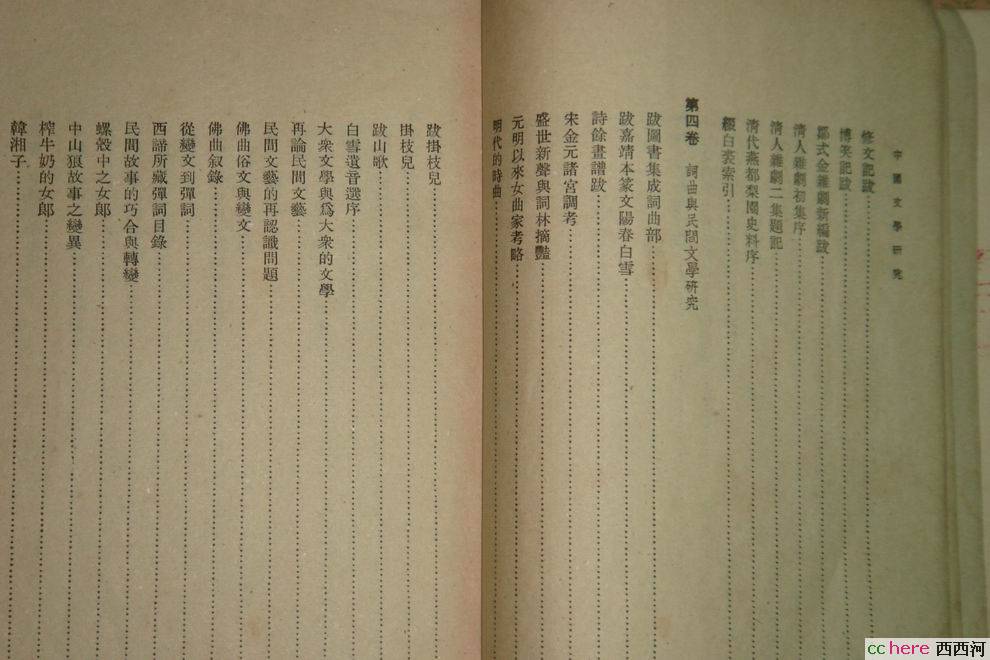 中國文學研究
修文記跋
博笑記跋
鄒式金雜劇新編跋
清人雜劇初集序
清人雜劇二集題記
清代燕都梨園史料序
綴白裘索引
第四卷 詞曲與民間文學研究
跋圖書集成詞曲部
跋嘉靖本篆文陽春白雪
詩餘畫譜跋
宋金元諸宮調考
盛世新聲與詞林摘艷
元明以來女曲家考略
明代的時曲
跋掛枝兒
掛枝兒
跋山歌
白雪遺音選序
大衆文學與爲大衆的文學
再論民間文藝
民間文藝的再認識問題
佛曲俗文與變文
佛曲叙錄
從變文到彈詞
西諦所藏彈詞目錄
民間故事的巧合與轉變
螺殼中之女郎
中山狼故事之變異
榨牛奶的女郎
韓湘子
cchere 西西河